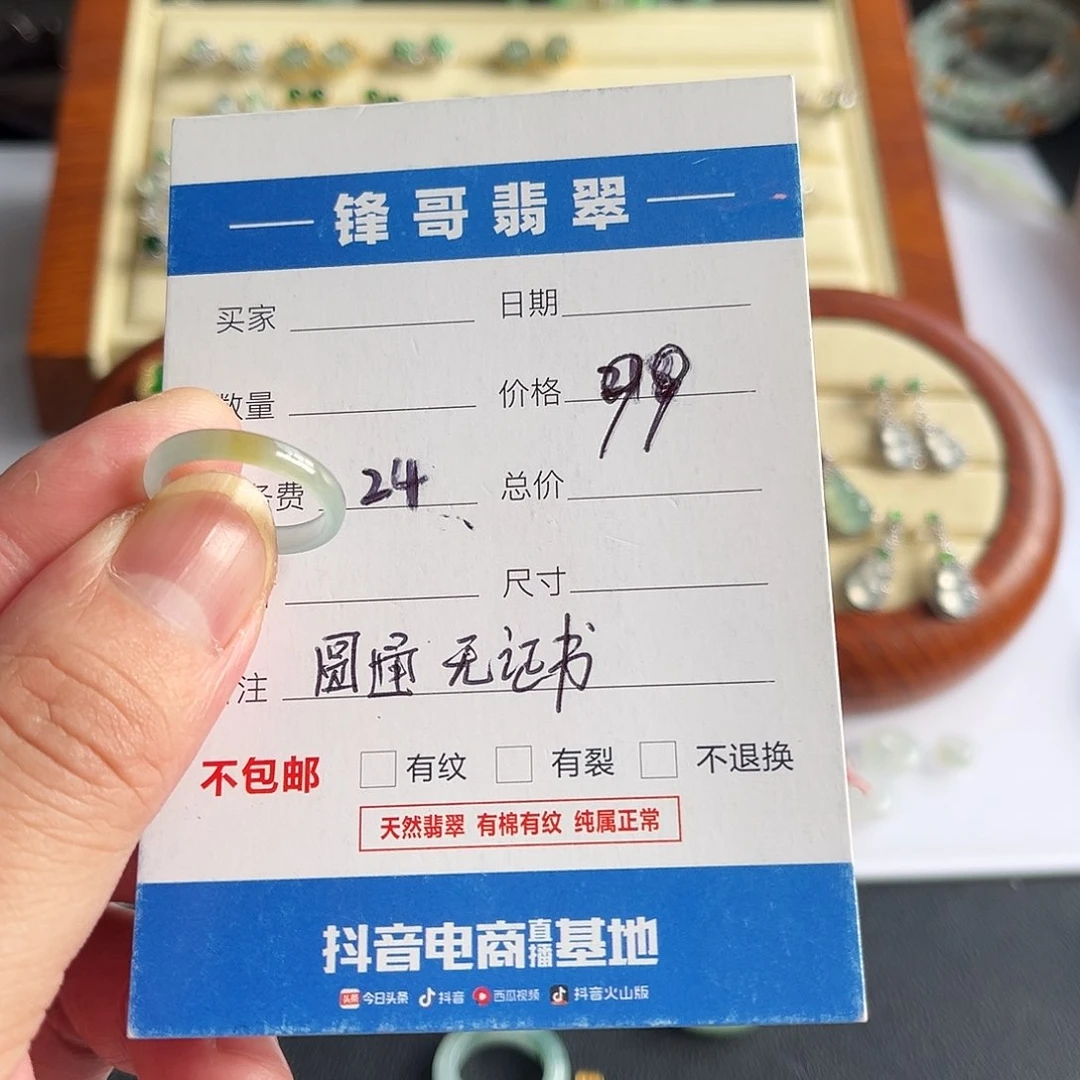 锋哥翡翠
买家 日期
数量 价格 99
费 24 总价
尺寸
注 圆通 无证书
不包邮 有纹 有裂 不退换
天然翡翠 有棉有纹 纯属正常
抖音电商直播基地
头条 今日头条 抖音 西瓜视频 抖音火山版